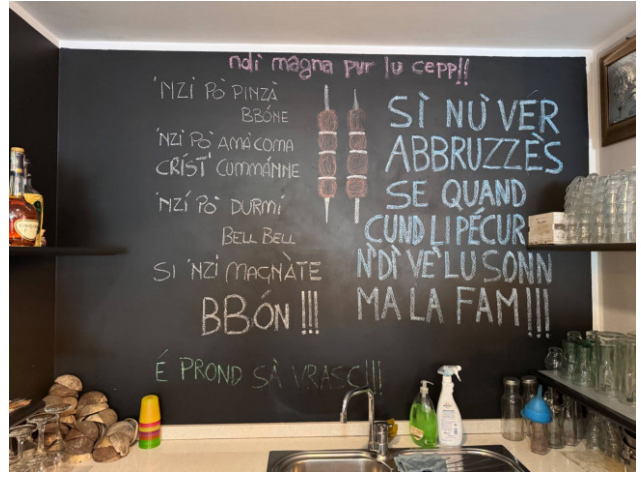 ndi magna pur lu cepp!!
'NZI PÒ PINZÀ
BBÓNE
'NZI PO' AMÀ COMA
CRÍST' CUMMÁNNE
'NZÍ PO' DURMÍ
BELL BELL
SI 'NZI MAGNÀTE
BBÓN !!!
É PROND SÀ VRASC!!!
SÌ NÙ VÉR
ABBRUZZÈS
SE QUAND
CUND LI PÉCUR
N'DÌ VÈ LU SONN
MA LA FAM!!!